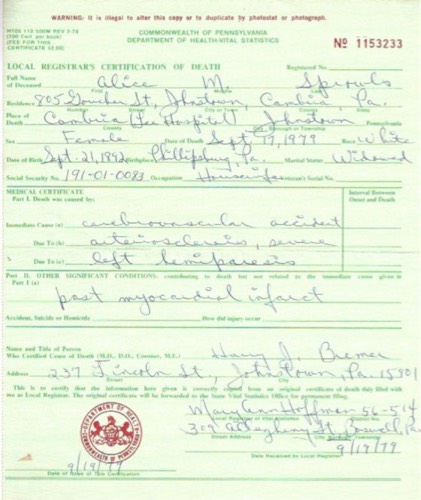 WARNING: It is illegal to alter this copy or to duplicate by photostat or photograph.
H105 112 500M REV 2-76
(FEE FOR THIS CERTIFICATE $2.00)
COMMONWEALTH OF PENNSYLVANIA
DEPARTMENT OF HEALTH-VITAL STATISTICS
No 1153233
LOCAL REGISTRAR'S CERTIFICATION OF DEATH Registered No.
Full Name of Deceased Alice M. Sprouls
First Middle Last
Residence 805 Goucher St, Johnstown, Cambria, Pa.
Street City or Town County
Place of Death Cambria (Lee Hospital) Johnstown Pennsylvania
County City, Borough or Township
Sex Female Date of Death Sept 19, 1979 Race White
Date of Birth Sept. 21, 1892 Birthplace Phillipsburg, Pa. Marital Status Widowed
Social Security No. Occupation Housewife Veteran's Serial No.
MEDICAL CERTIFICATE
Part I. Death was caused by: Interval Between Onset and Death
Immediate Cause (a) cerebrovascular accident
Due To (b) arteriosclerosis, severe
Due To (c) left hemiparesis
Part II. OTHER SIGNIFICANT CONDITIONS, contributing to death but not related to the immediate cause given in
Part I (a)
past myocardial infarct
Accident, Suicide or Homicide How did injury occur
Name and Title of Person
Who Certified Cause of Death (M.D., D.O., Coroner, M.E.) Harry J. Bremer
Address 237 Lincoln St, Johnstown, Pa. 15901
Street City
This is to certify that the information here given is correctly copied from an original certificate of death duly filed with
me as Local Registrar. The original certificate will be forwarded to the State Vital Statistics Office for permanent filing.
Mary Ann Hoffman 56-514
309 Allegheny St, Boswell, Pa.
Street Address
9/19/79
Date Received by Local Registrar
DEPARTMENT OF HEALTH
COMMONWEALTH OF PENNSYLVANIA
9/19/79
Date of Issue of This Certification